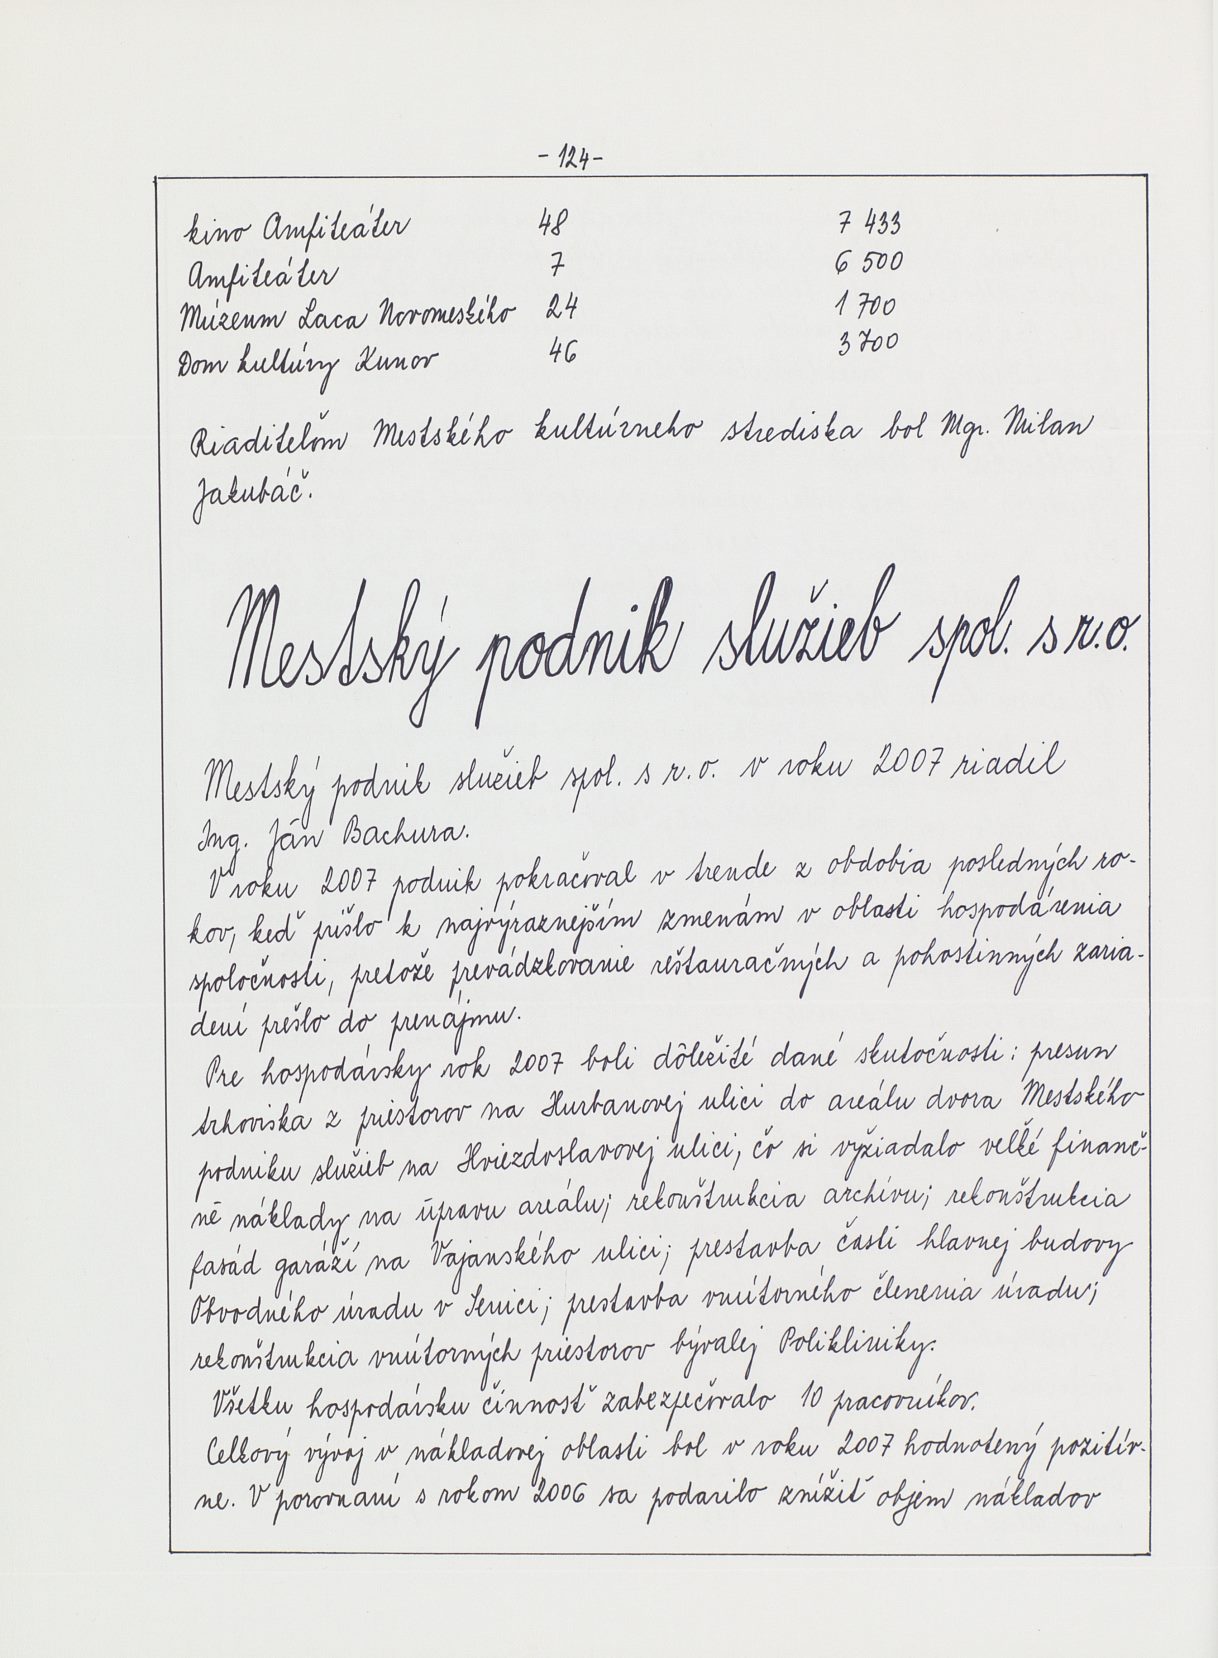 - 124 -
kino Amfiteáter 48 7 433
Amfiteáter 7 6 500
Múzeum Laca Novomeského 24 1 700
Dom kultúry Kunov 46 3 700
Riaditeľom Mestského kultúrneho strediska bol Mgr. Milan
Jakubáč.
Mestský podnik služieb spol. s r.o.
Mestský podnik služieb spol. s r.o. v roku 2007 riadil
Ing. Ján Bachura.
V roku 2007 podnik pokračoval v trende z obdobia posledných ro-
kov, keď prišlo k najvýraznejším zmenám v oblasti hospodárenia
spoločnosti, pretože prevádzkovanie reštauračných a pohostinných zaria-
dení prešlo do prenájmu.
Pre hospodársky rok 2007 boli dôležité dané skutočnosti: presun
trhoviska z priestorov na Hurbanovej ulici do areálu dvora Mestského
podniku služieb na Hviezdoslavovej ulici, čo si vyžiadalo veľké finanč-
né náklady na úpravu areálu; rekonštrukcia archívu; rekonštrukcia
fasád garáží na Vajanského ulici; prestavba časti hlavnej budovy
Obvodného úradu v Senici; prestavba vnútorného členenia úradu;
rekonštrukcia vnútorných priestorov bývalej Polikliniky.
Všetku hospodársku činnosť zabezpečovalo 10 pracovníkov.
Celkový vývoj v nákladovej oblasti bol v roku 2007 hodnotený pozitív-
ne. V porovnaní s rokom 2006 sa podarilo znížiť objem nákladov